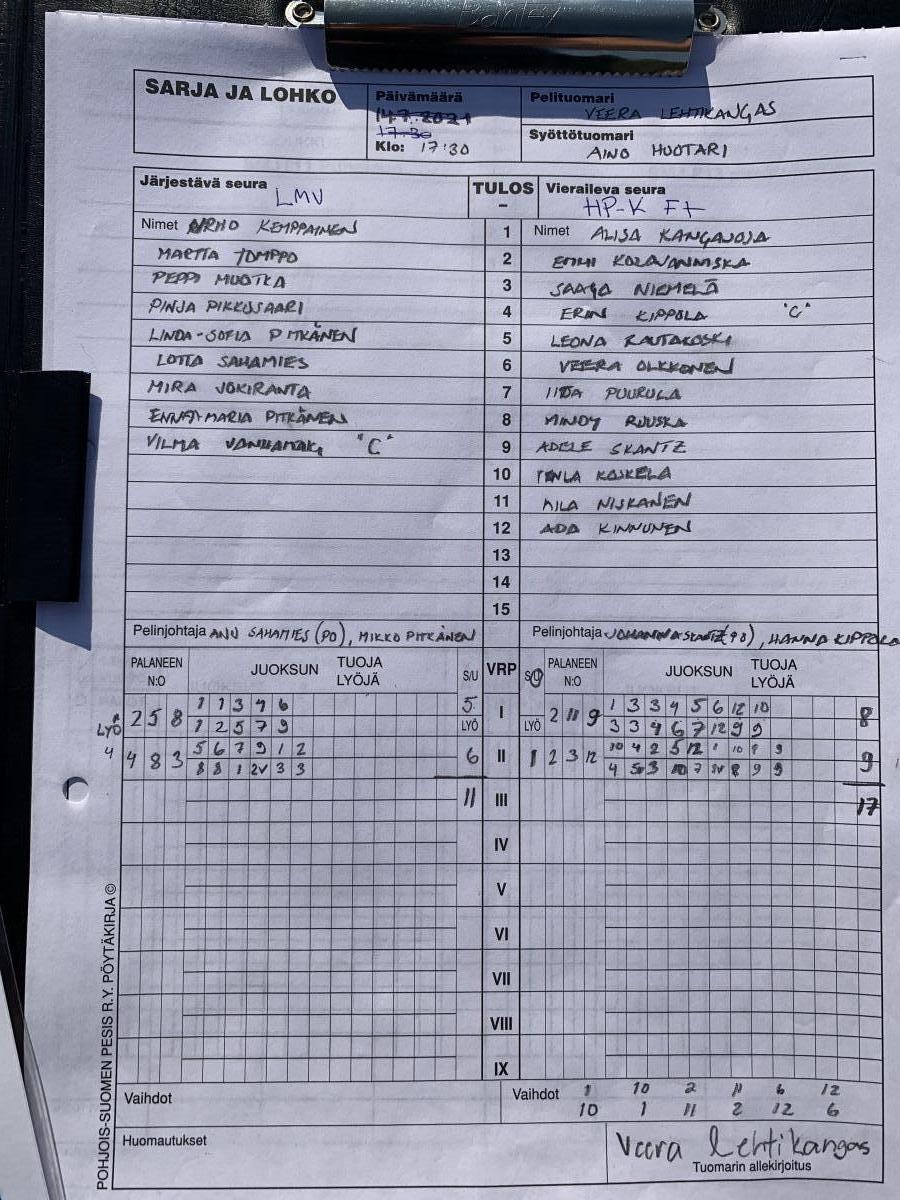 Banlex
SARJA JA LOHKO
Päivämäärä
14.7.2021
17.30
Klo: 17:30
Pelituomari
VEERA LEHTIKANGAS
Syöttötuomari
AINO HUOTARI
Järjestävä seura LMV
TULOS
–
Vieraileva seura HP-K F+
Nimet KEMPPAINEN 1 Nimet ALISA KANGASOJA
MARTTA TOMPPO 2 EMMI
PEPPI MUOTKA 3 SAAGA NIEMELÄ
PINJA PIKKUSAARI 4 ERIN KIPPOLA "C"
LINDA-SOFIA PITKÄNEN 5 LEONA RAUTAKOSKI
LOTTA SAHAMIES 6 VEERA OLKKONEN
MIRA JOKIRANTA 7 IIDA PUURULA
ENNA-MARIA PITKÄNEN 8 MINDY RUUSKA
VILMA VANHAMÄKI "C" 9 ADELE SKANTZ
10 KOSKELA
11 MILA NISKANEN
12 ADA KINNUNEN
13
14
15
Pelinjohtaja ANU SAHAMIES (PO), MIKKO PITKÄNEN Pelinjohtaja JOHANNA SKANTZ (PO), HANNA KIPPOLA
PALANEEN N:O JUOKSUN TUOJA LYÖJÄ S/U VRP S/U PALANEEN N:O JUOKSUN TUOJA LYÖJÄ
1 1 3 4 6 5 1 3 3 4 5 6 12 10
LYÖ 2 5 8 I 2 11 9 8
1 2 5 7 9 LYÖ LYÖ 3 3 4 6 7 12 9 9
5 6 7 9 1 2 10 4 2 5 12 1 10 8 9
4 4 8 3 6 II 1 2 3 12 9
8 8 1 2V 3 3 4 5 3 10 7 8 9 9
11 III 17
IV
V
VI
VII
VIII
IX
Vaihdot Vaihdot 1 10 2 11 6 12
10 1 11 2 12 6
Huomautukset Veera Lehtikangas
Tuomarin allekirjoitus
POHJOIS-SUOMEN PESIS R.Y. PÖYTÄKIRJA ©